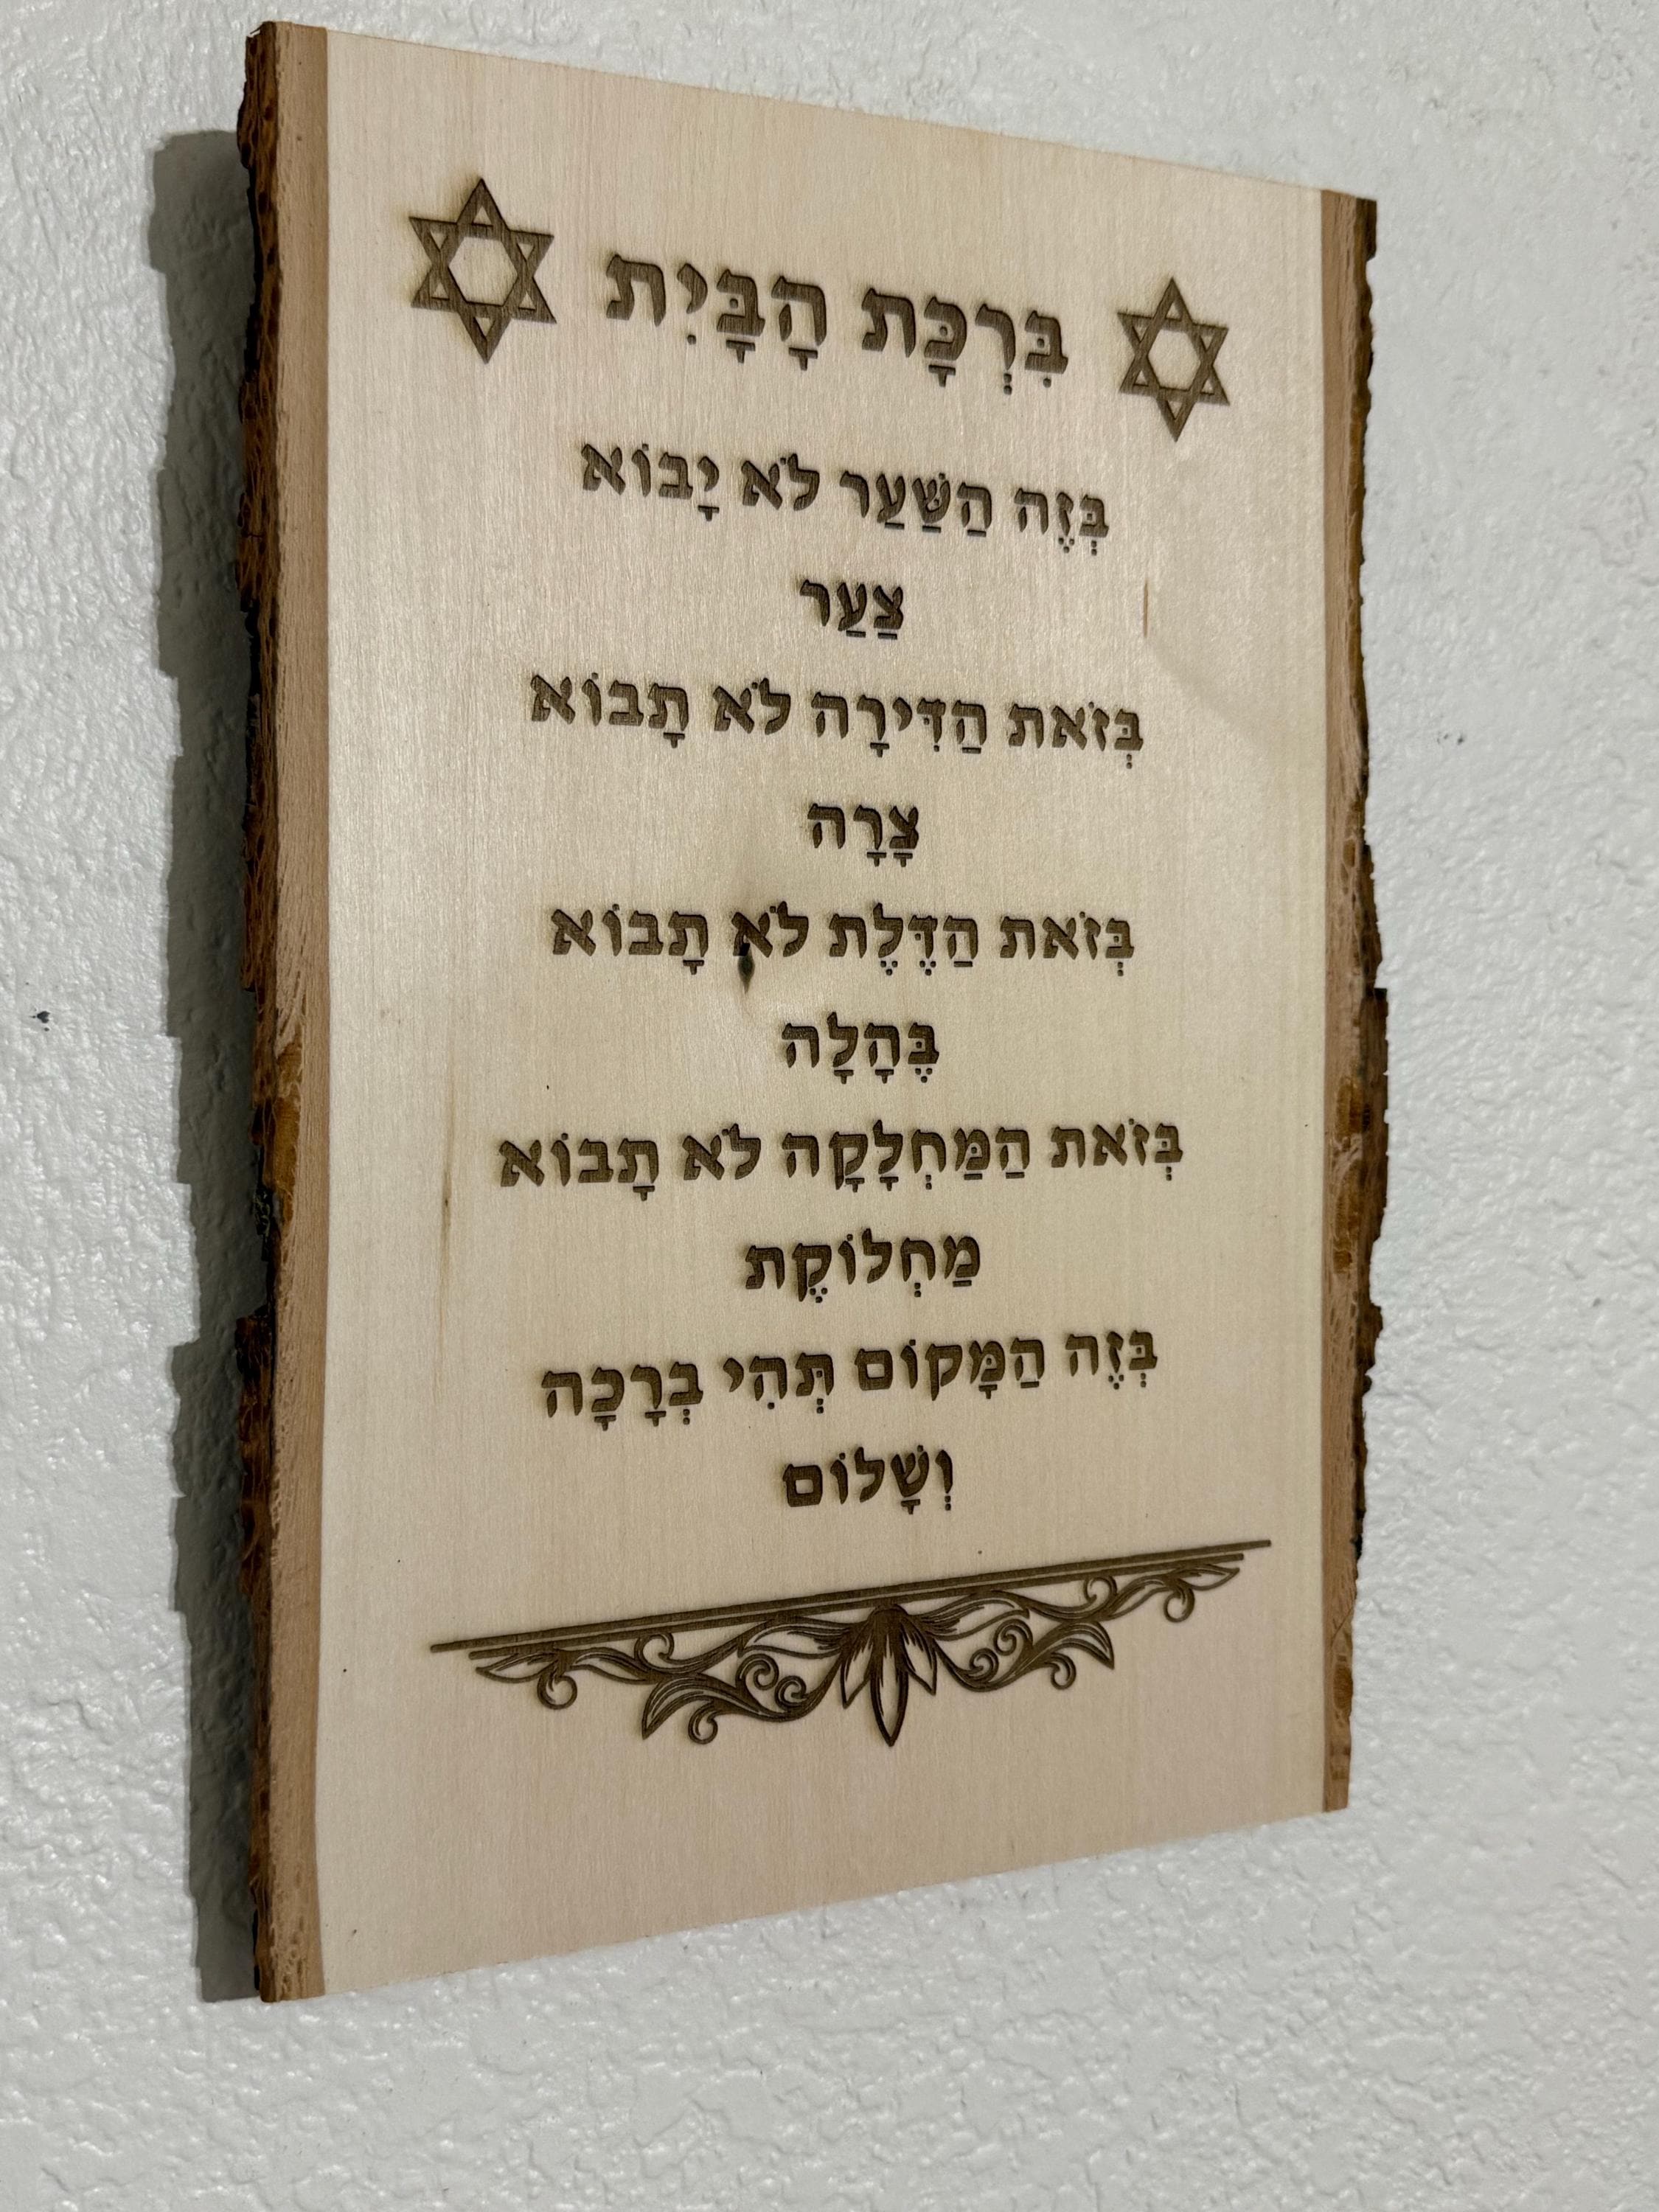 בִּרְכָּת הָבָּיִת
בְּזֶה הַשַּׁעַר לֹא יָבוֹא
צַעַר
בְּזֹאת הַדִּירָה לֹא תָבוֹא
צָרָה
בְּזֹאת הַדֶּלֶת לֹא תָבוֹא
בֶּהָלָה
בְּזֹאת הַמַּחְלָקָה לֹא תָבוֹא
מַחְלוֹקֶת
בְּזֶה הַמָּקוֹם תְּהִי בְרָכָה
וְשָׁלוֹם